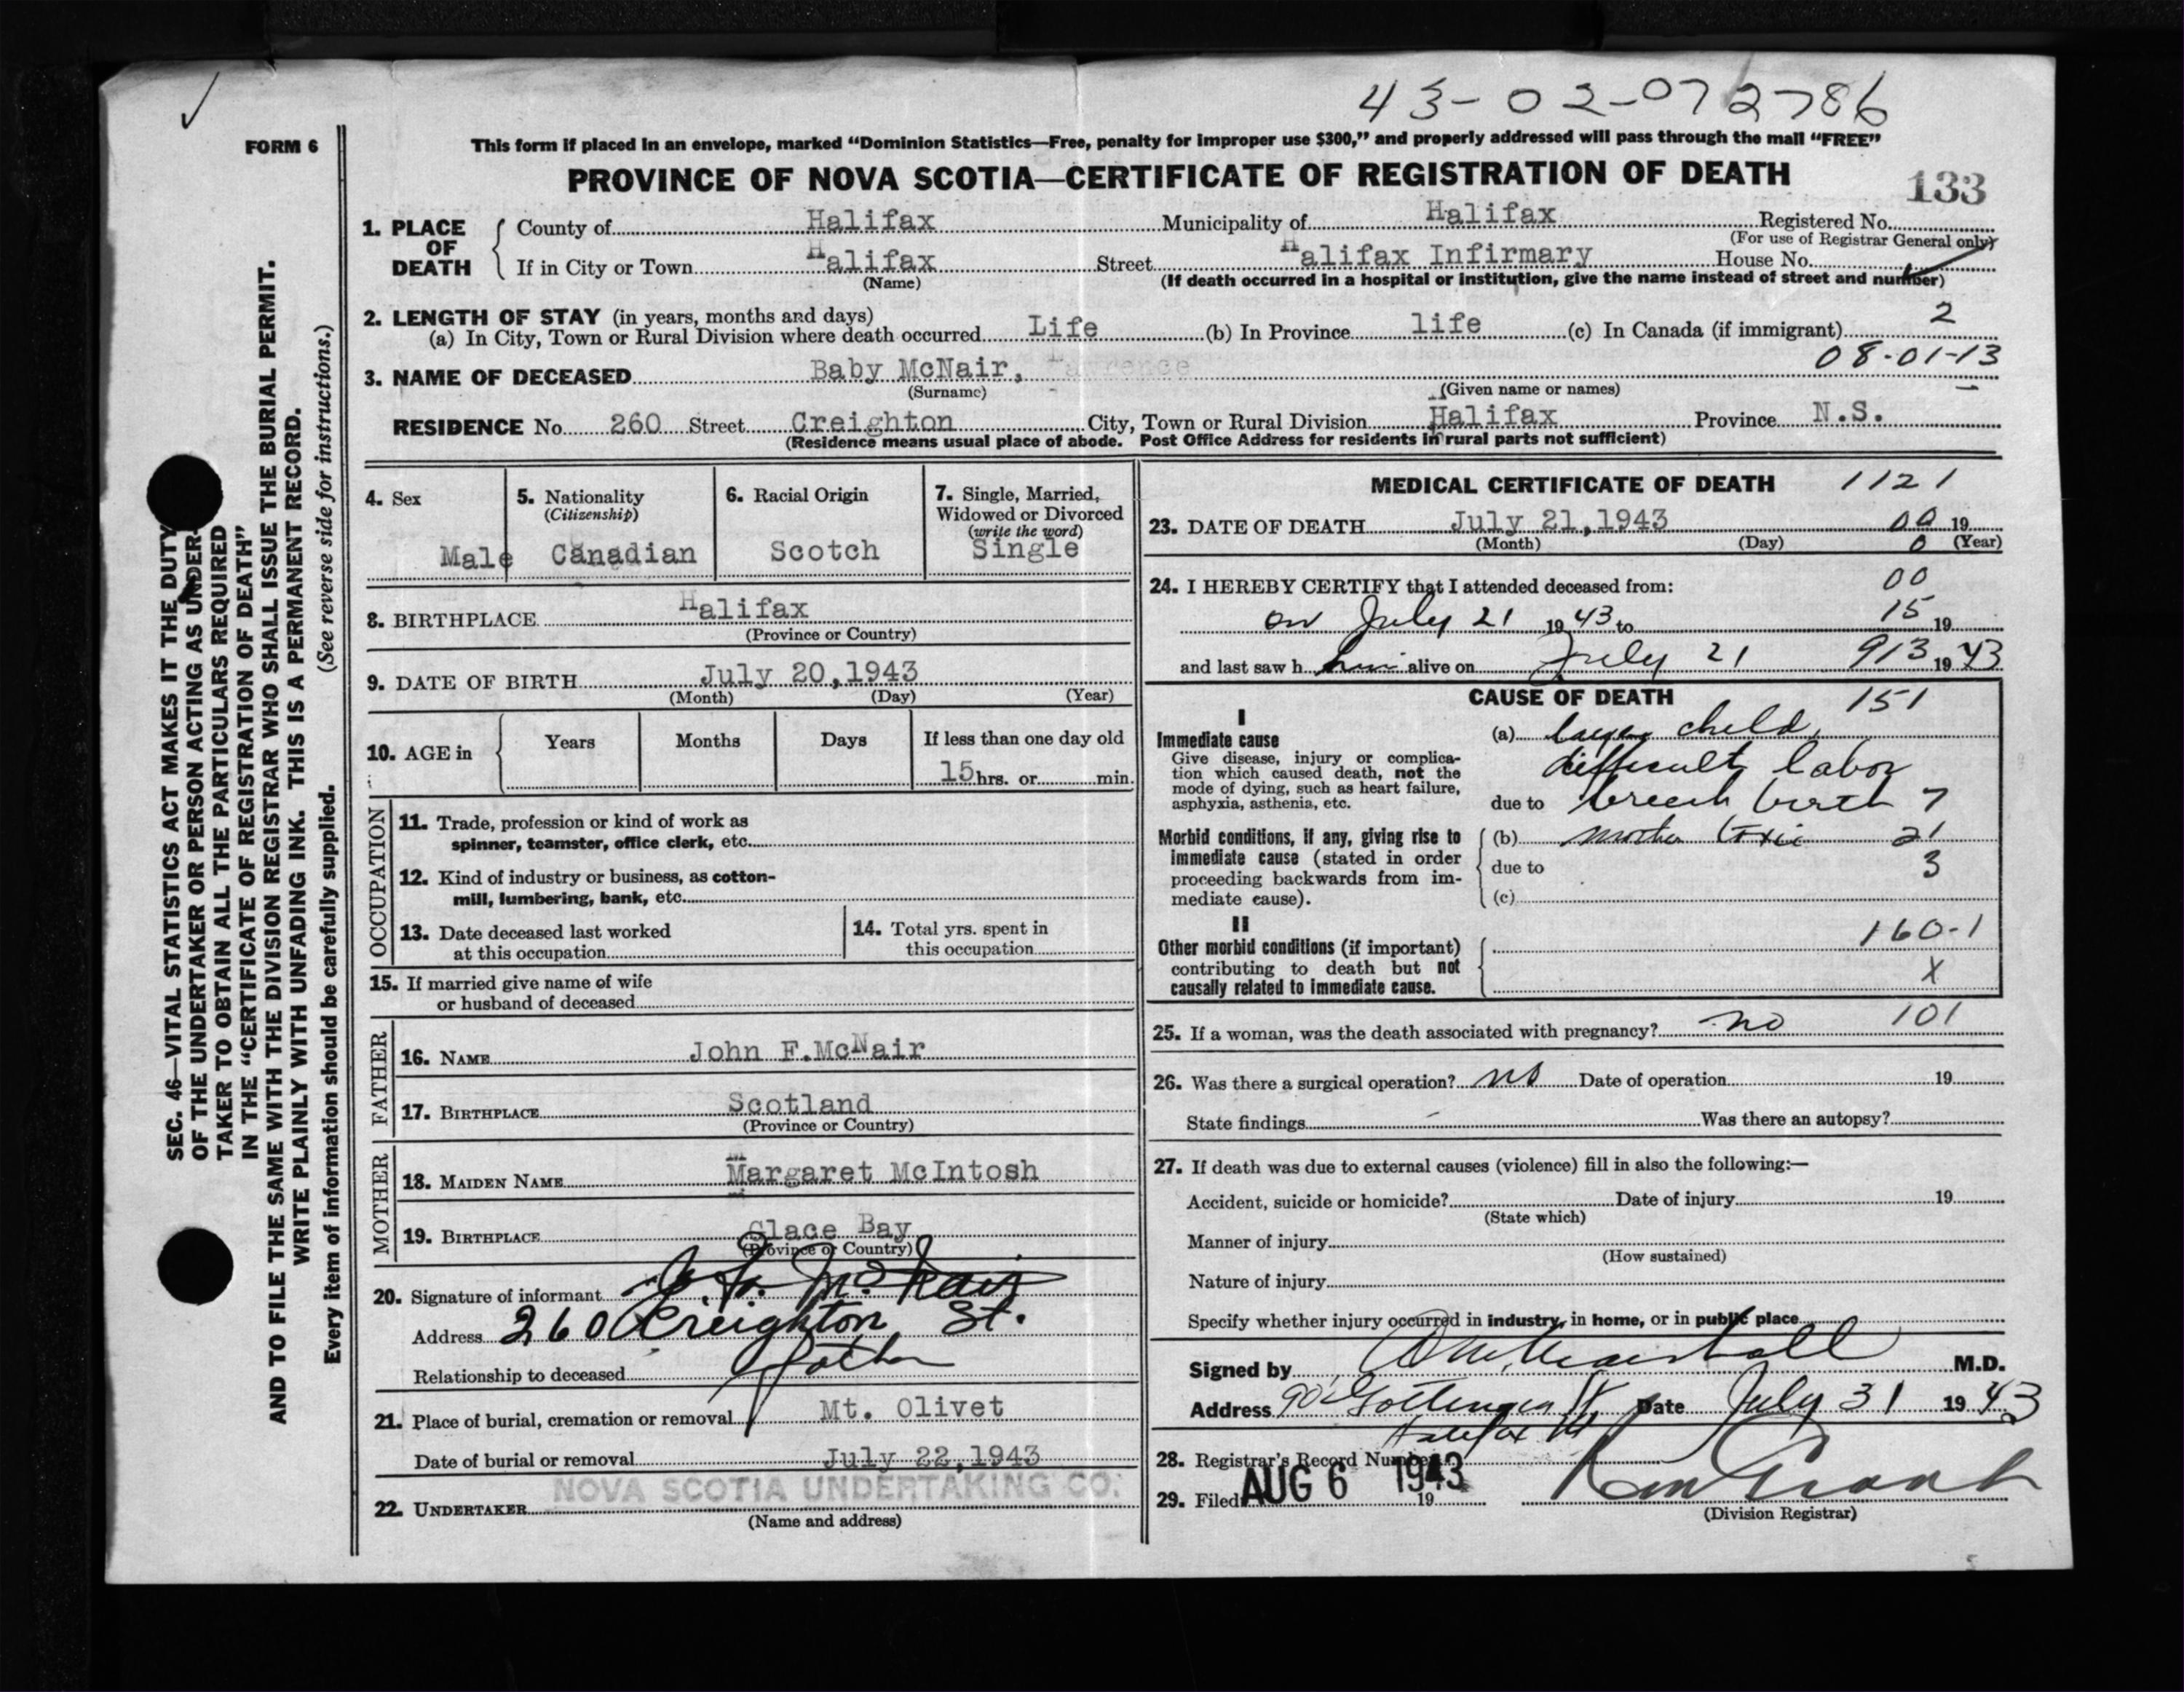 43-02-072786
FORM 6
This form if placed in an envelope, marked "Dominion Statistics—Free, penalty for improper use $300," and properly addressed will pass through the mail "FREE"
PROVINCE OF NOVA SCOTIA—CERTIFICATE OF REGISTRATION OF DEATH
133
1. PLACE OF DEATH
County of Halifax Municipality of Halifax Registered No.
(For use of Registrar General only)
If in City or Town Halifax Street Halifax Infirmary House No.
(Name) (If death occurred in a hospital or institution, give the name instead of street and number)
2. LENGTH OF STAY (in years, months and days) 2
(a) In City, Town or Rural Division where death occurred Life (b) In Province life (c) In Canada (if immigrant)
08-01-13
3. NAME OF DECEASED Baby McNair,
(Surname) (Given name or names)
RESIDENCE No. 260 Street Creighton City, Town or Rural Division Halifax Province N.S.
(Residence means usual place of abode. Post Office Address for residents in rural parts not sufficient)
4. Sex
Male
5. Nationality
(Citizenship)
Canadian
6. Racial Origin
Scotch
7. Single, Married,
Widowed or Divorced
(write the word)
Single
8. BIRTHPLACE Halifax
(Province or Country)
9. DATE OF BIRTH July 20,1943
(Month) (Day) (Year)
10. AGE in Years Months Days If less than one day old
15 hrs. or min.
OCCUPATION
11. Trade, profession or kind of work as
spinner, teamster, office clerk, etc.
12. Kind of industry or business, as cotton-
mill, lumbering, bank, etc.
13. Date deceased last worked
at this occupation
14. Total yrs. spent in
this occupation
15. If married give name of wife
or husband of deceased
FATHER
16. NAME John F.McNair
17. BIRTHPLACE Scotland
(Province or Country)
MOTHER
18. MAIDEN NAME Margaret McIntosh
19. BIRTHPLACE Glace Bay
(Province or Country)
20. Signature of informant McNair
Address 260 Creighton St.
Relationship to deceased father
21. Place of burial, cremation or removal Mt. Olivet
Date of burial or removal July 22,1943
NOVA SCOTIA UNDERTAKING CO.
22. UNDERTAKER
(Name and address)
MEDICAL CERTIFICATE OF DEATH 1121
23. DATE OF DEATH July 21,1943 00 19
(Month) (Day) 0 (Year)
24. I HEREBY CERTIFY that I attended deceased from: 00
on July 21 1943 to 15 19
and last saw h im alive on July 21 913 1943
CAUSE OF DEATH 151
I
Immediate cause
Give disease, injury or complica-
tion which caused death, not the
mode of dying, such as heart failure,
asphyxia, asthenia, etc.
(a) large child,
difficult labor
due to breech birth 7
Morbid conditions, if any, giving rise to
immediate cause (stated in order
proceeding backwards from im-
mediate cause).
(b) mother toxic 21
due to 3
(c)
II
Other morbid conditions (if important)
contributing to death but not
causally related to immediate cause.
160-1
X
25. If a woman, was the death associated with pregnancy? no 101
26. Was there a surgical operation? no Date of operation 19
State findings Was there an autopsy?
27. If death was due to external causes (violence) fill in also the following:—
Accident, suicide or homicide? Date of injury 19
(State which)
Manner of injury
(How sustained)
Nature of injury
Specify whether injury occurred in industry, in home, or in public place
Signed by Marshall M.D.
Address Gottingen St Date July 31 1943
Halifax
28. Registrar's Record Number
29. Filed AUG 6 1943 19
(Division Registrar)
SEC. 46—VITAL STATISTICS ACT MAKES IT THE DUTY
OF THE UNDERTAKER OR PERSON ACTING AS UNDER-
TAKER TO OBTAIN ALL THE PARTICULARS REQUIRED
IN THE "CERTIFICATE OF REGISTRATION OF DEATH"
AND TO FILE THE SAME WITH THE DIVISION REGISTRAR WHO SHALL ISSUE THE BURIAL PERMIT.
WRITE PLAINLY WITH UNFADING INK. THIS IS A PERMANENT RECORD.
Every item of information should be carefully supplied. (See reverse side for instructions.)